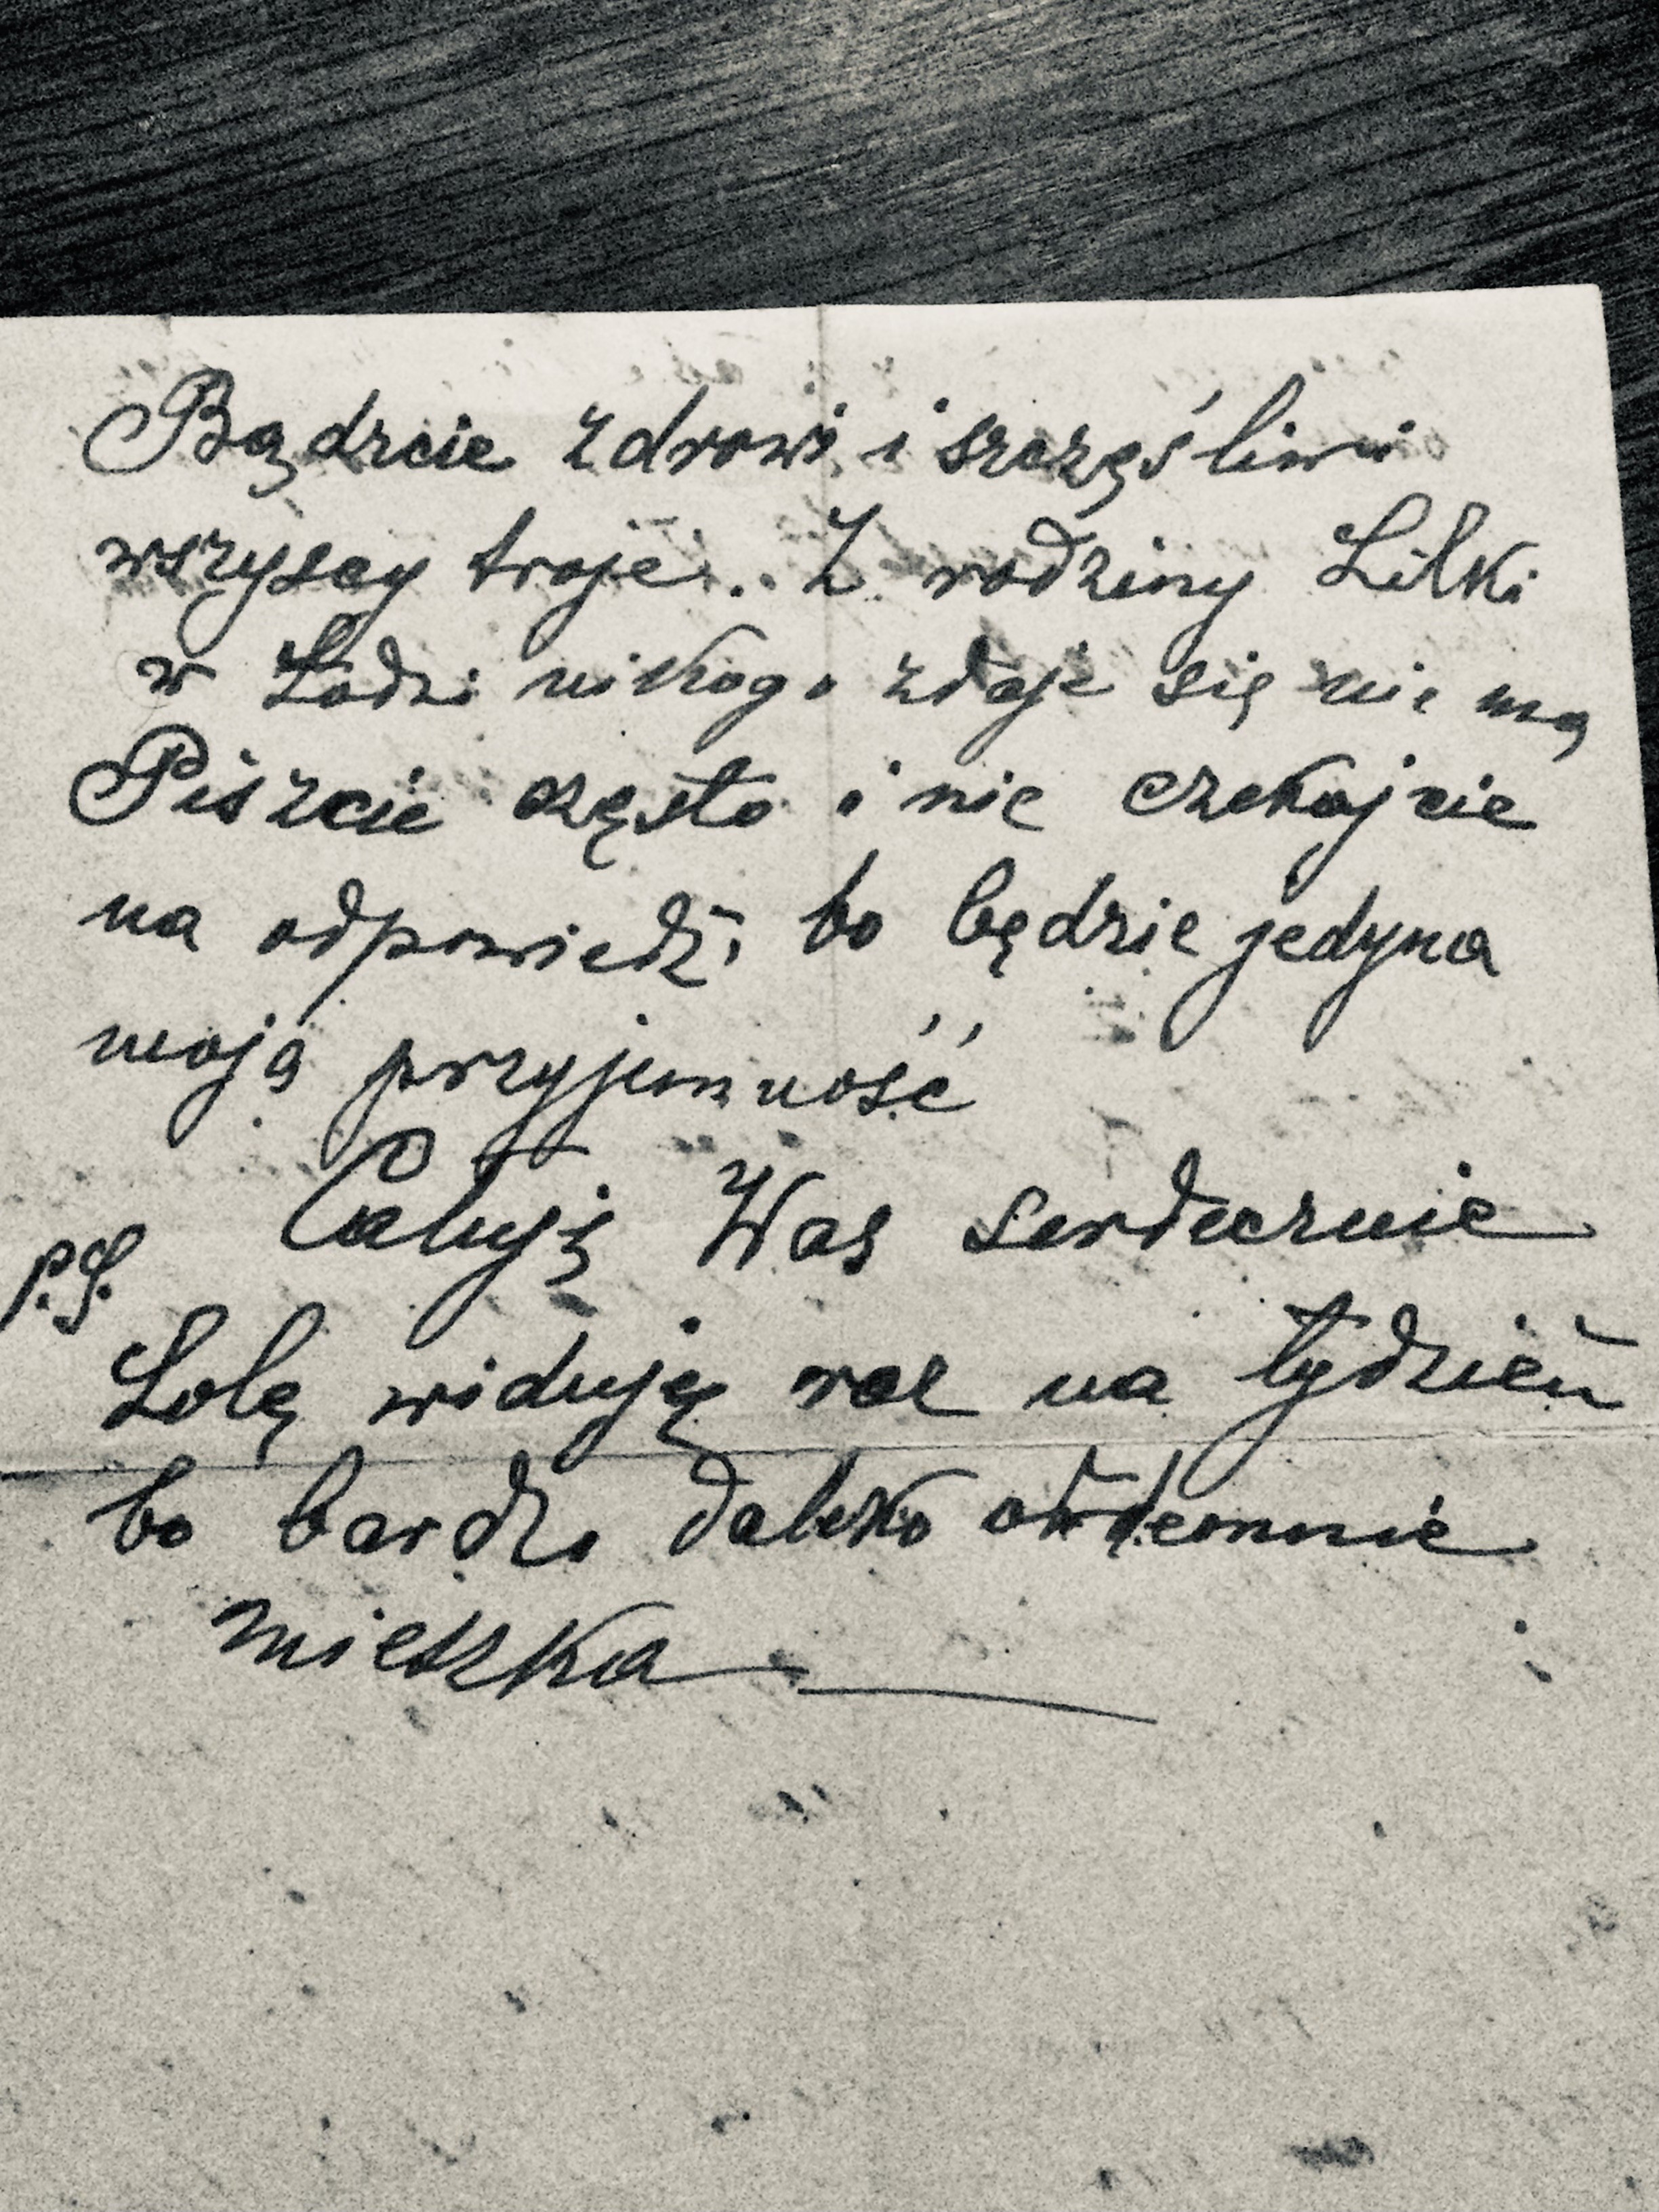 Bądzcie zdrowi i szczęśliwi
wszyscy troje... Z rodziny Lilki
w Łodzi nikogo zdaje się nie ma
Piszcie często i nie czekajcie
na odpowiedź, bo będzie jedyna
moją przyjemność
Całuję Was serdecznie
P.S.
Lolę widuję raz na tydzień
bo bardzo daleko odemnie
mieszka